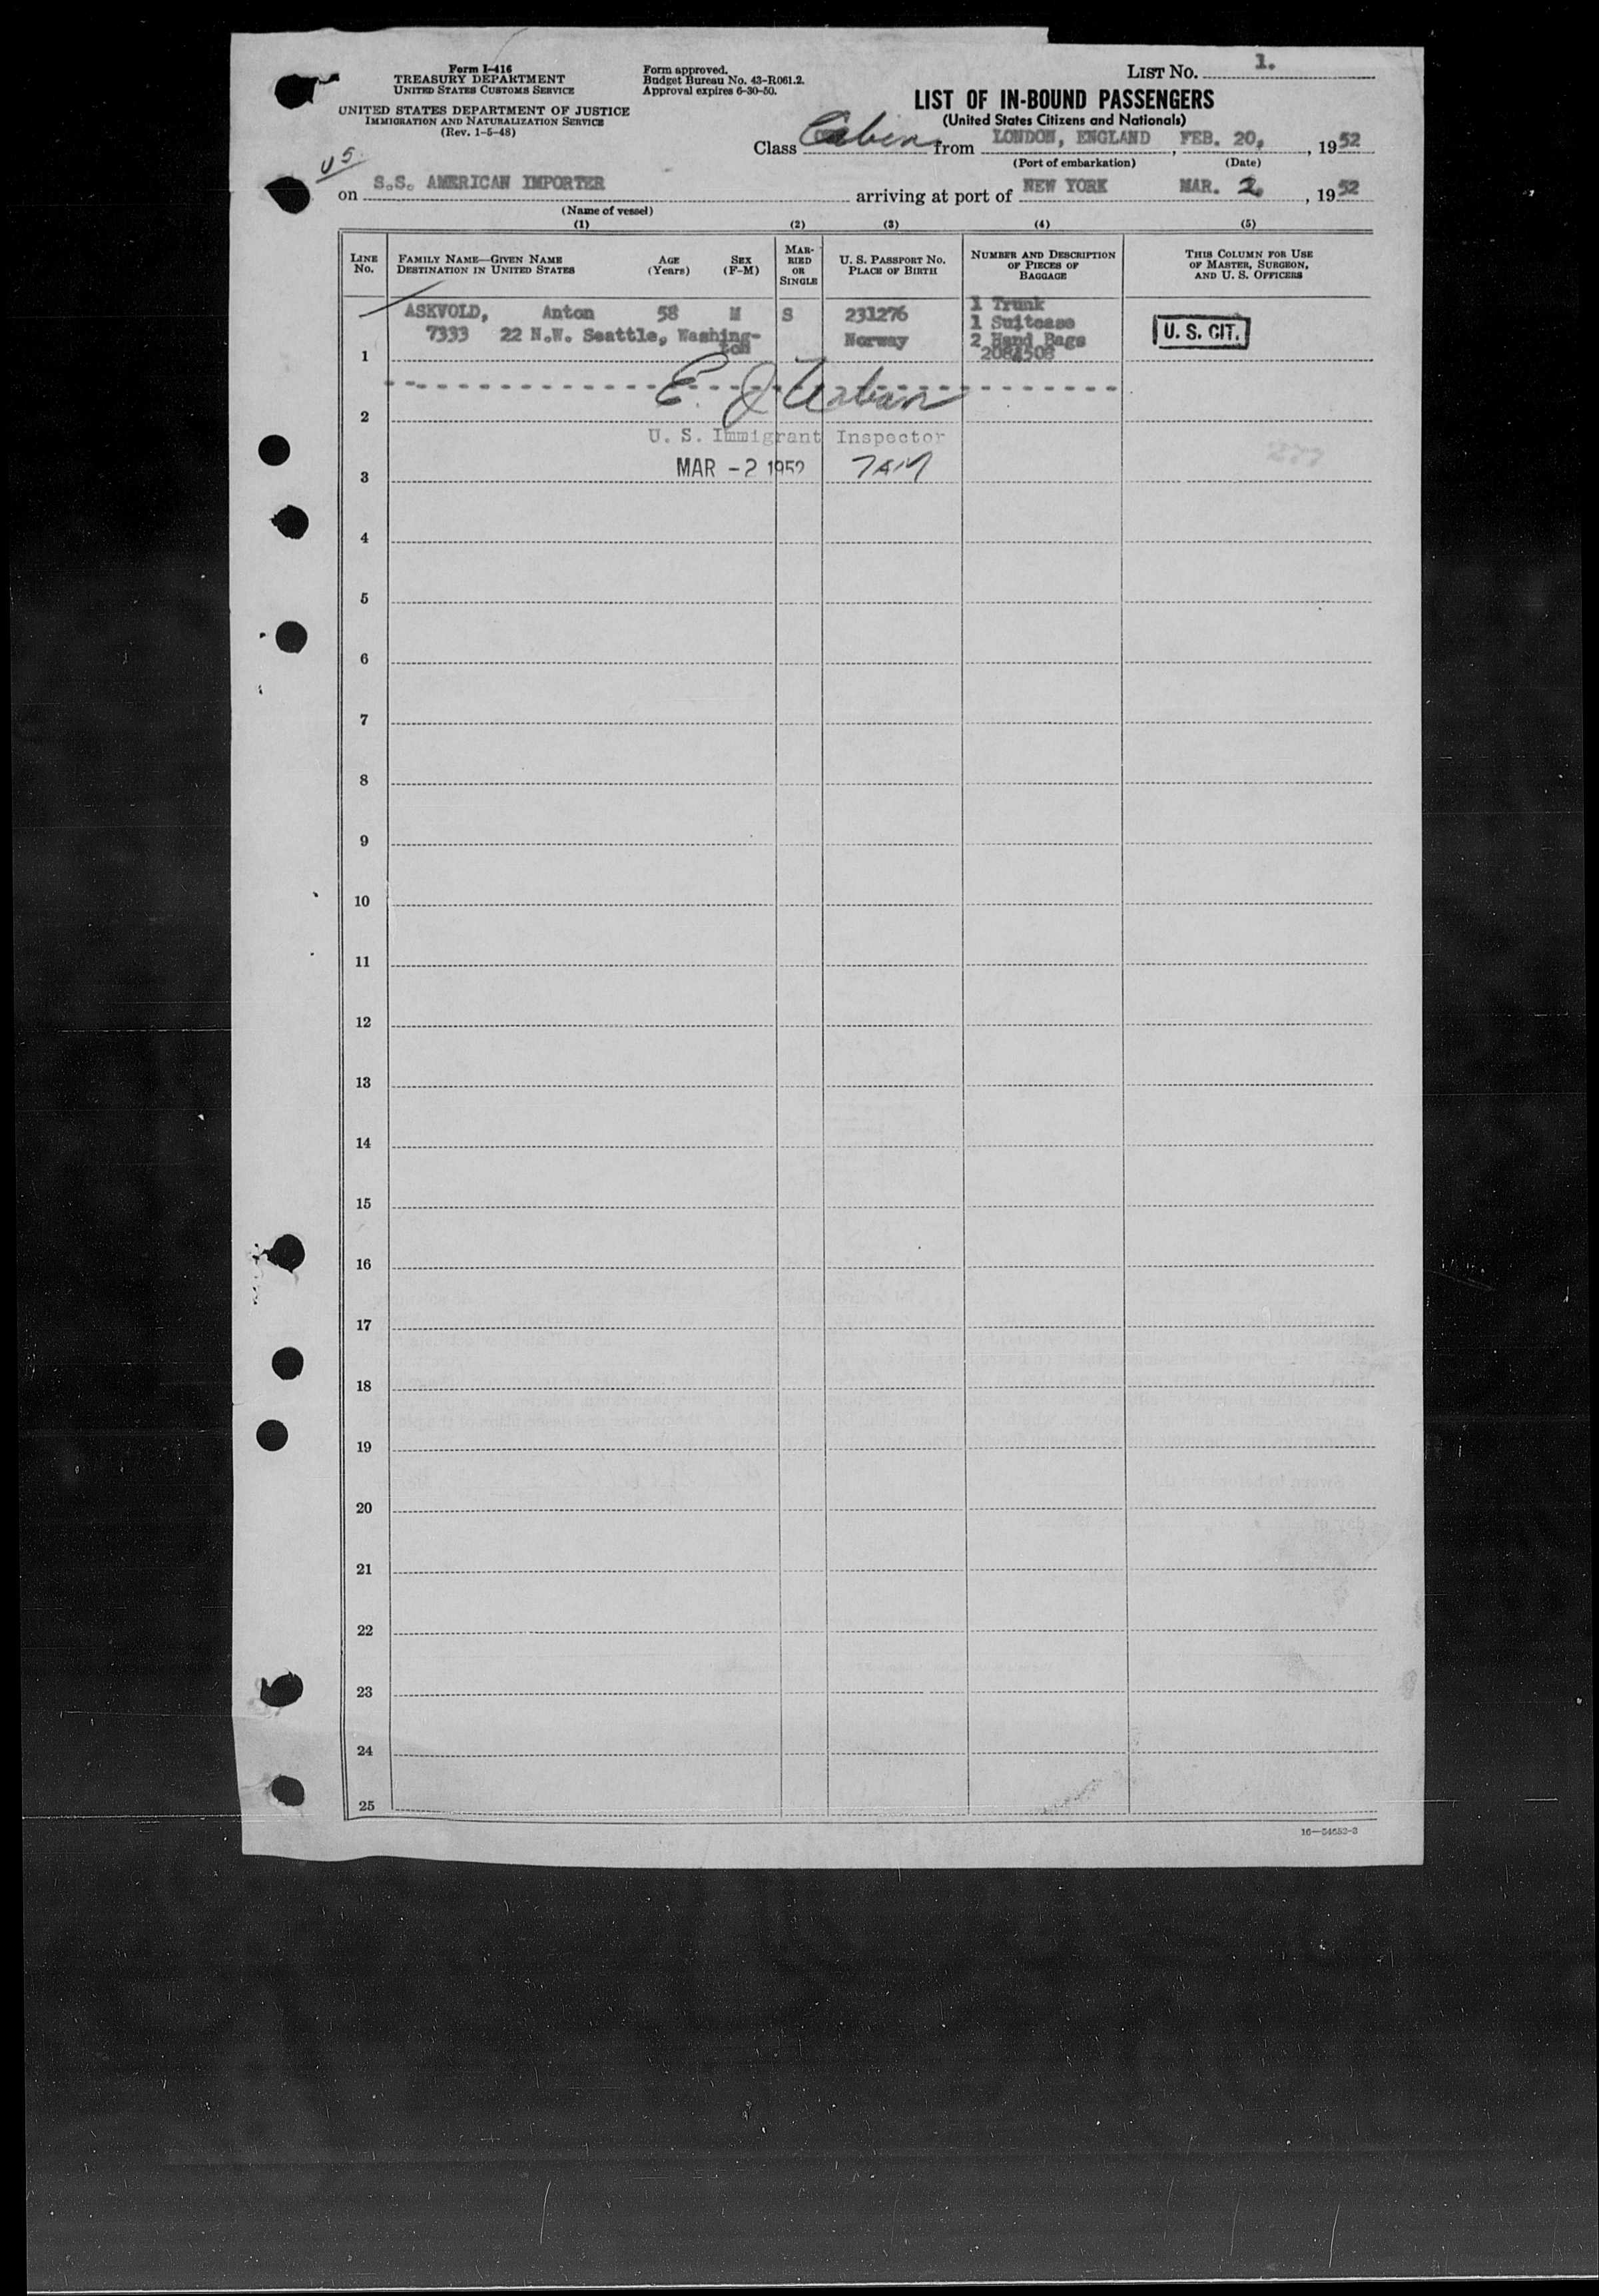 Form I-416
TREASURY DEPARTMENT
UNITED STATES CUSTOMS SERVICE
UNITED STATES DEPARTMENT OF JUSTICE
IMMIGRATION AND NATURALIZATION SERVICE
(Rev. 1-5-48)
Form approved.
Budget Bureau No. 43-R061.2.
Approval expires 6-30-50.
LIST NO. 1.
LIST OF IN-BOUND PASSENGERS
(United States Citizens and Nationals)
Class Cabin from LONDON, ENGLAND, FEB. 20, 1952
(Port of embarkation) (Date)
on S.S. AMERICAN IMPORTER arriving at port of NEW YORK MAR. 2, 1952
(Name of vessel)
(1) (2) (3) (4) (5)
LINE NO.
FAMILY NAME—GIVEN NAME
DESTINATION IN UNITED STATES
AGE (Years)
SEX (F-M)
MARRIED OR SINGLE
U. S. PASSPORT NO.
PLACE OF BIRTH
NUMBER AND DESCRIPTION OF PIECES OF BAGGAGE
THIS COLUMN FOR USE OF MASTER, SURGEON, AND U. S. OFFICERS
ASKVOLD, Anton 58 M S 231276 1 Trunk
1 Suitcase
7333 22 N.W. Seattle, Washington Norway 2 Hand Bags
U. S. CIT.
1
E. J. Urban
2
U. S. Immigrant Inspector
MAR -2 1952
3
4
5
6
7
8
9
10
11
12
13
14
15
16
17
18
19
20
21
22
23
24
25
16—54653-3